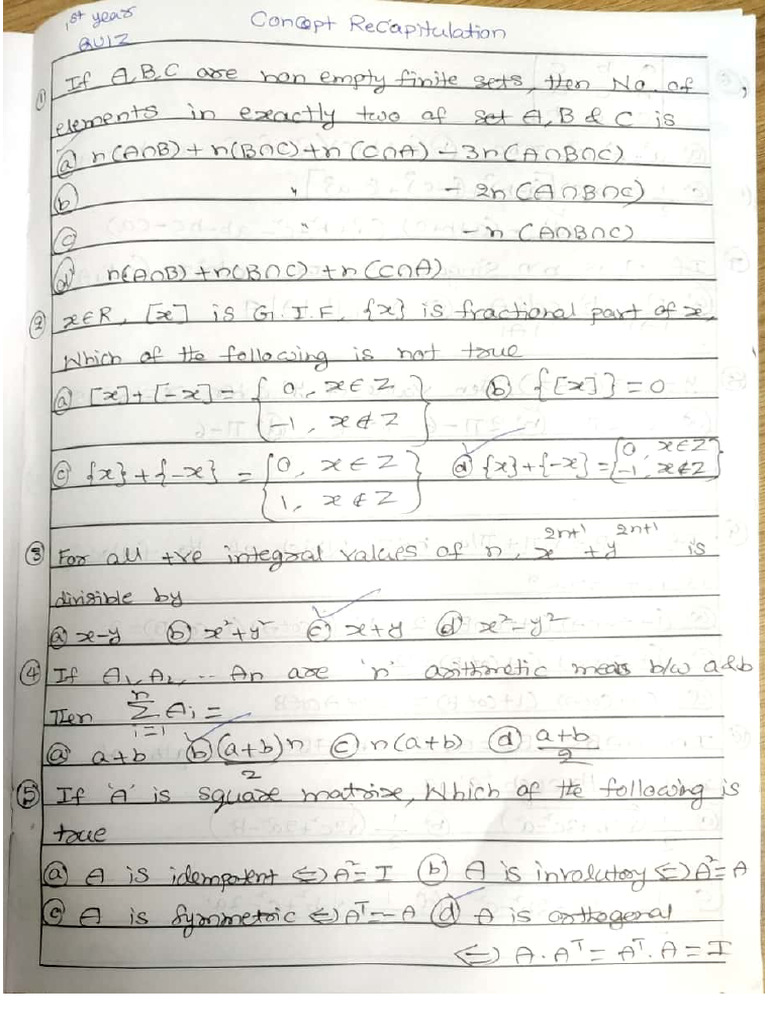 1st year
QUIZ
Concept Recapitulation
① If A,B,C are non empty finite sets, then No. of
elements in exactly two of set A, B & C is
ⓐ n(A∩B) + n(B∩C) + n(C∩A) - 3n(A∩B∩C)
ⓑ " - 2n(A∩B∩C)
ⓒ " - n(A∩B∩C)
ⓓ n(A∩B) + n(B∩C) + n(C∩A)
② x∈R, [x] is G.I.F, {x} is fractional part of x,
Which of the following is not true
ⓐ [x]+[-x] = { 0, x∈Z ⓑ {[x]} = 0
-1, x∉Z }
ⓒ {x}+{-x} = { 0, x∈Z ⓓ {x}+{-x} = { 0, x∈Z
1, x∉Z } -1, x∉Z }
③ For all +ve integral values of n, x^{2n+1} + y^{2n+1} is
divisible by
ⓐ x-y ⓑ x²+y² ⓒ x+y ⓓ x²-y²
④ If A₁, A₂, ... An are 'n' arithmetic means b/w a&b
Then \sum_{i=1}^{n} Ai =
ⓐ a+b ⓑ (a+b)n/2 ⓒ n(a+b) ⓓ a+b/2
⑤ If 'A' is square matrix, Which of the following is
true
ⓐ A is idempotent ⇔ A²=I ⓑ A is involutory ⇔ A²=A
ⓒ A is symmetric ⇔ Aᵀ=-A ⓓ A is orthogonal
⇔ A.Aᵀ = Aᵀ.A = I